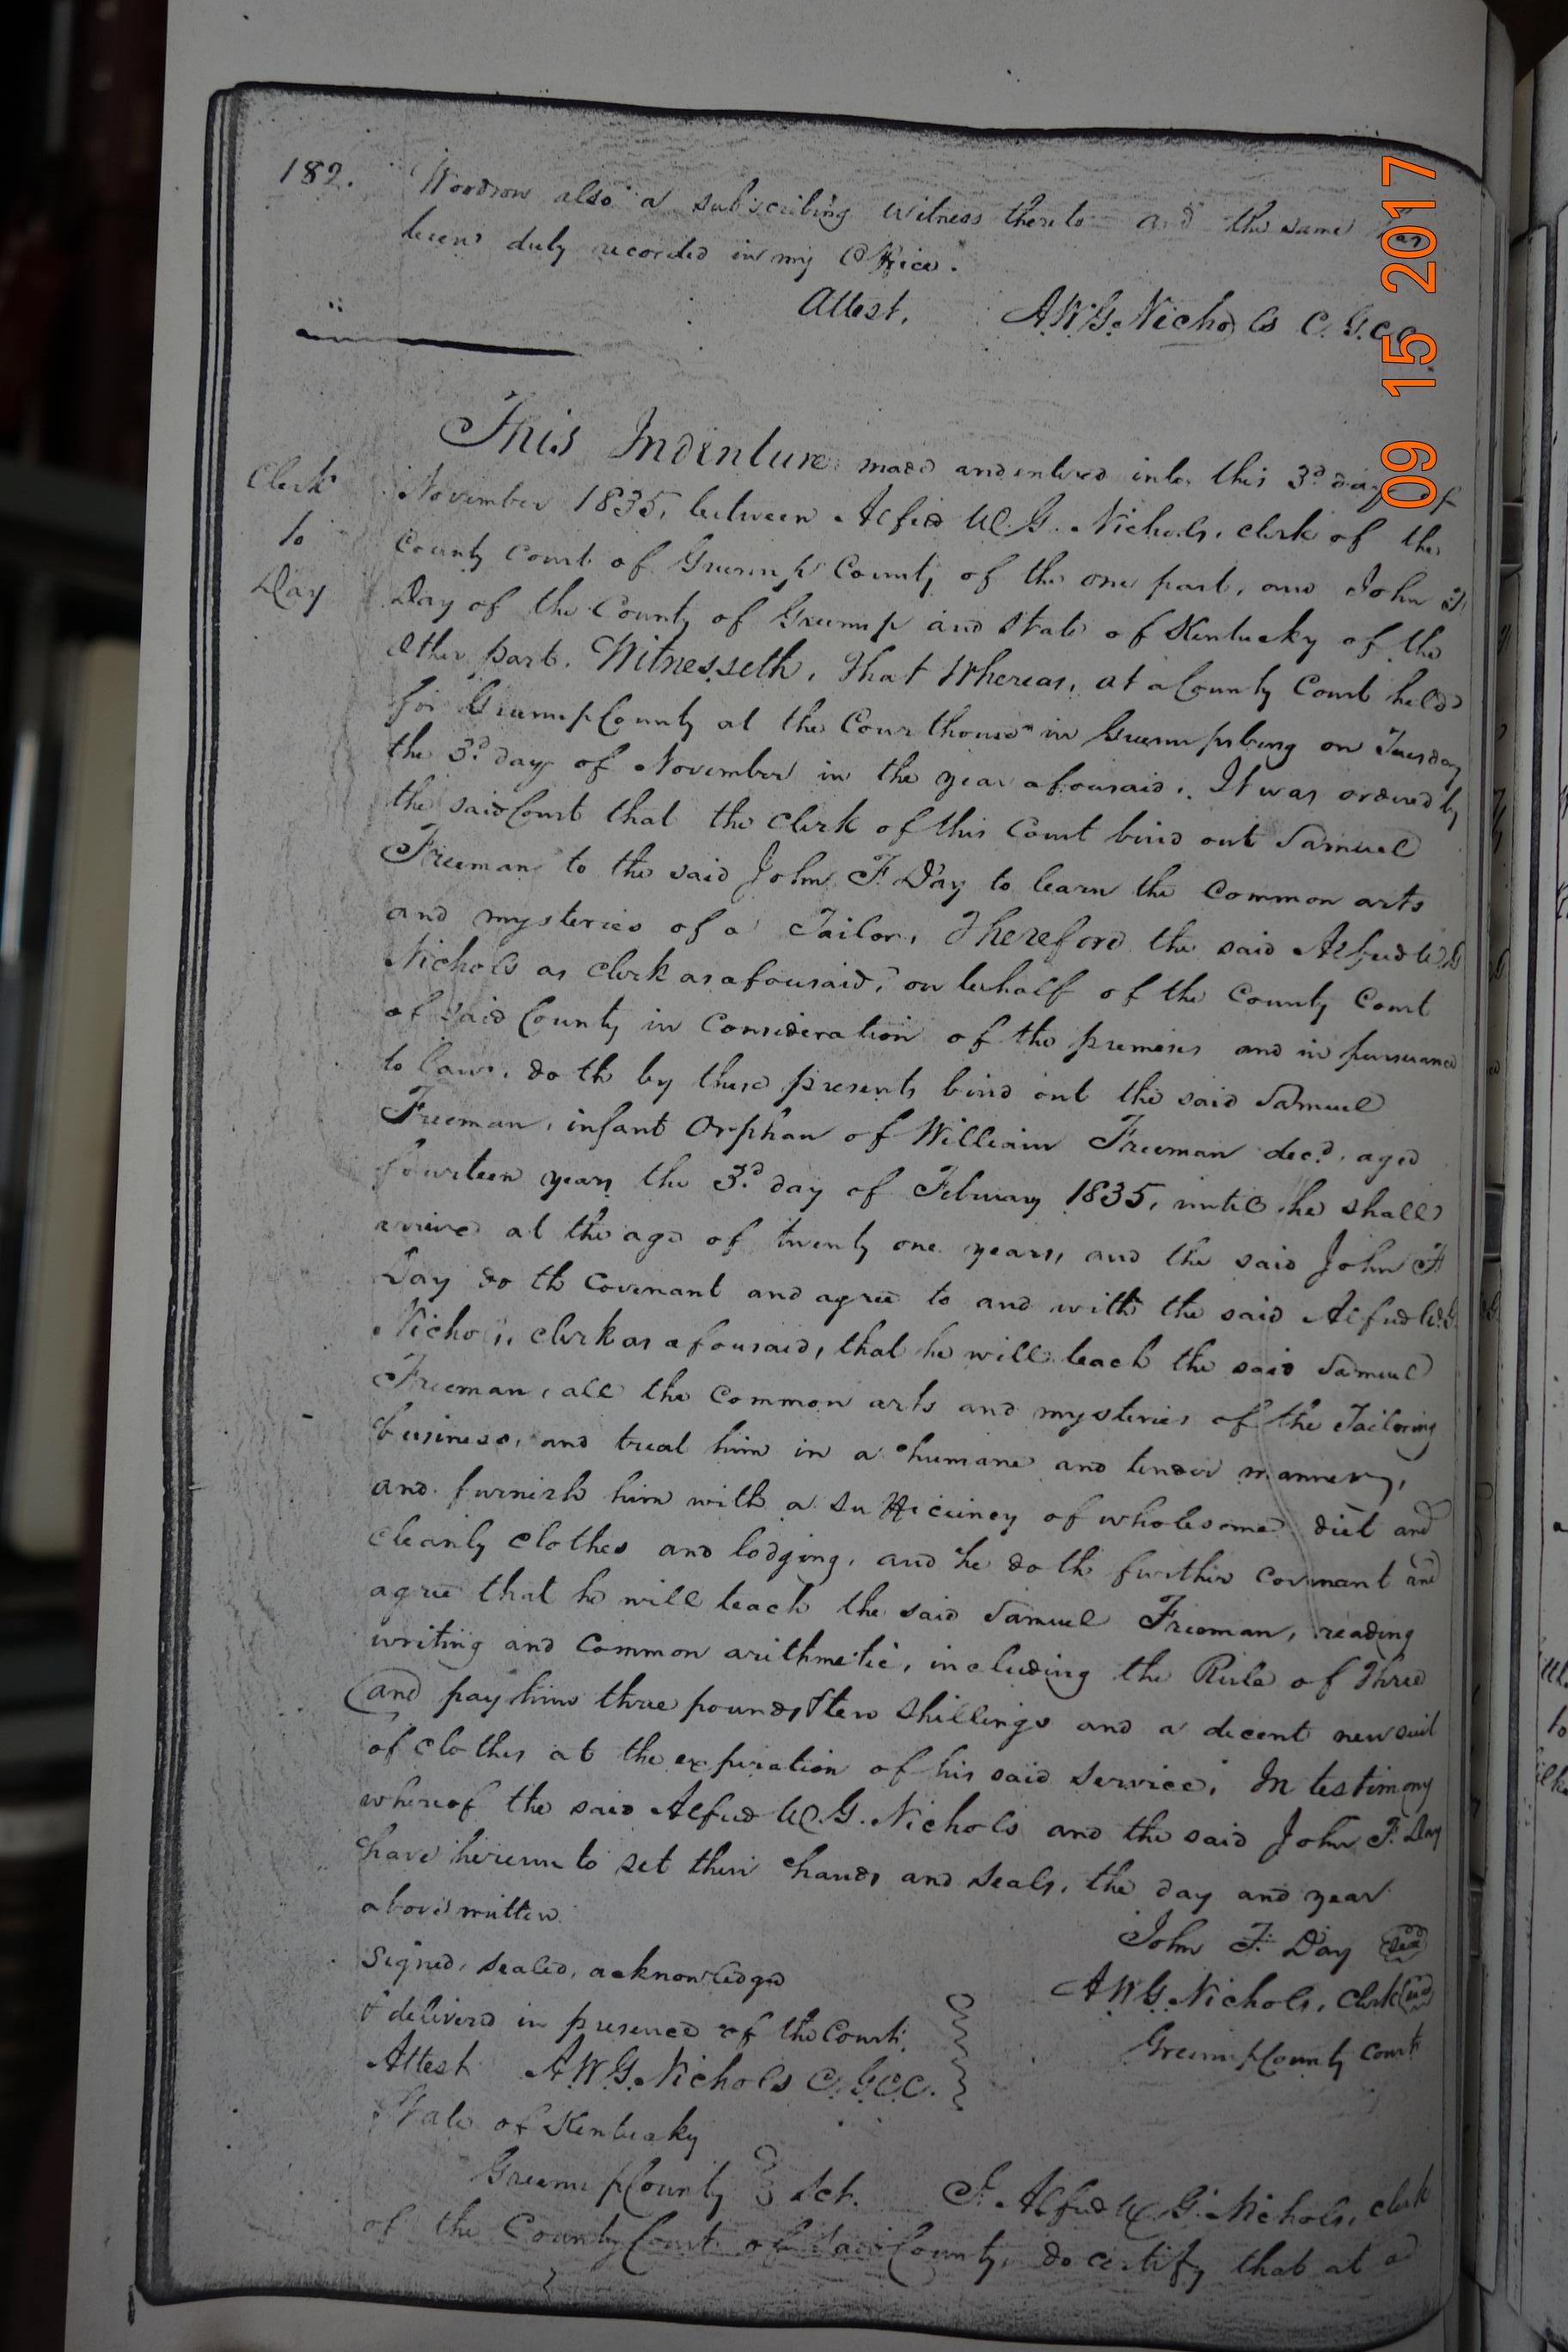 182. Woodrow also a subscribing witness thereto and the same has
been duly recorded in my Office.
Attest, A.W.G. Nichols C.G.C.C.
09 15 2017
This Indenture made and entered into this 3d day of
Clerk November 1835, between Alfred W. G. Nichols, clerk of the
to County Court of Greenup County of the one part, and John F.
Day Day of the County of Greenup and State of Kentucky of the
other part. Witnesseth, That Whereas, at a County Court held
for Greenup County at the Courthouse in Greenupsburg on Tuesday
the 3d day of November in the year aforesaid, It was ordered by
the said Court that the clerk of this Court bind out Samuel
Freeman to the said John F. Day to learn the common arts
and mysteries of a Tailor, Therefore the said Alfred W.G.
Nichols as clerk as aforesaid, on behalf of the County Court
of said County in consideration of the premises and in pursuance
to law, doth by these presents bind out the said Samuel
Freeman, infant Orphan of William Freeman decd. aged
fourteen years the 3d day of February 1835, until he shall
arrive at the age of twenty one years, and the said John F
Day doth covenant and agree to and with the said Alfred W.G.
Nichols, clerk as aforesaid, that he will teach the said Samuel
Freeman, all the common arts and mysteries of the Tailoring
business, and treat him in a humane and tender manner,
and furnish him with a sufficiency of wholesome diet and
cleanly clothes and lodging, and he doth further covenant and
agree that he will teach the said Samuel Freeman, reading
writing and common arithmetic, including the Rule of Three
and pay him three pounds ten shillings and a decent new suit
of clothes at the expiration of his said service. In testimony
whereof the said Alfred W.G. Nichols and the said John F. Day
have hereunto set their hands and seals, the day and year
above written.
John F. Day seal
Signed, sealed, acknowledged
A W G. Nichols, Clerk seal
& delivered in presence of the Court.
Greenup County Court
Attest A.W.G. Nichols C.G.C.C.
State of Kentucky
Greenup County Sct. I, Alfred W. G. Nichols, clerk
of the County Court of said County, do certify that at a